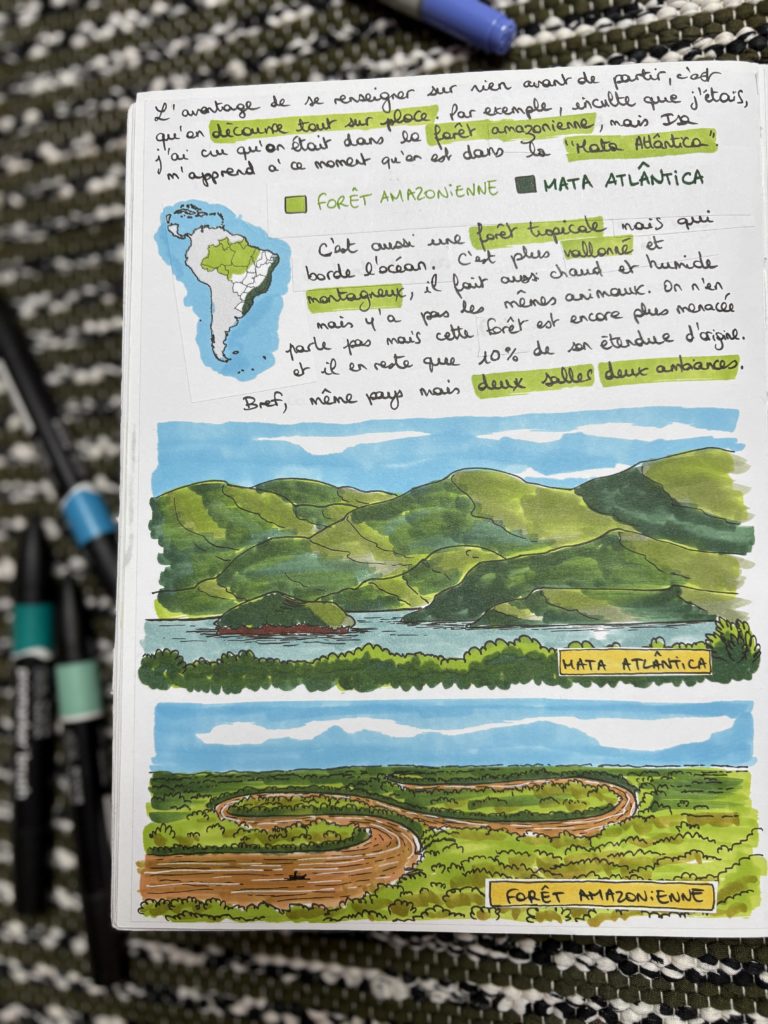 L'avantage de se renseigner sur rien avant de partir, c'est
qu'on découvre tout sur place. Par exemple, inculte que j'étais,
j'ai cru qu'on était dans la forêt amazonienne, mais Isa
m'apprend à ce moment qu'on est dans la "Mata Atlântica".
FORÊT AMAZONIENNE MATA ATLÂNTICA
C'est aussi une forêt tropicale mais qui
borde l'océan. C'est plus vallonné et
montagneux, il fait aussi chaud et humide
mais y'a pas les mêmes animaux. On n'en
parle pas mais cette forêt est encore plus menacée
et il en reste que 10% de son étendue d'origine.
Bref, même pays mais deux salles deux ambiances.
MATA ATLÂNTICA
FORÊT AMAZONIENNE